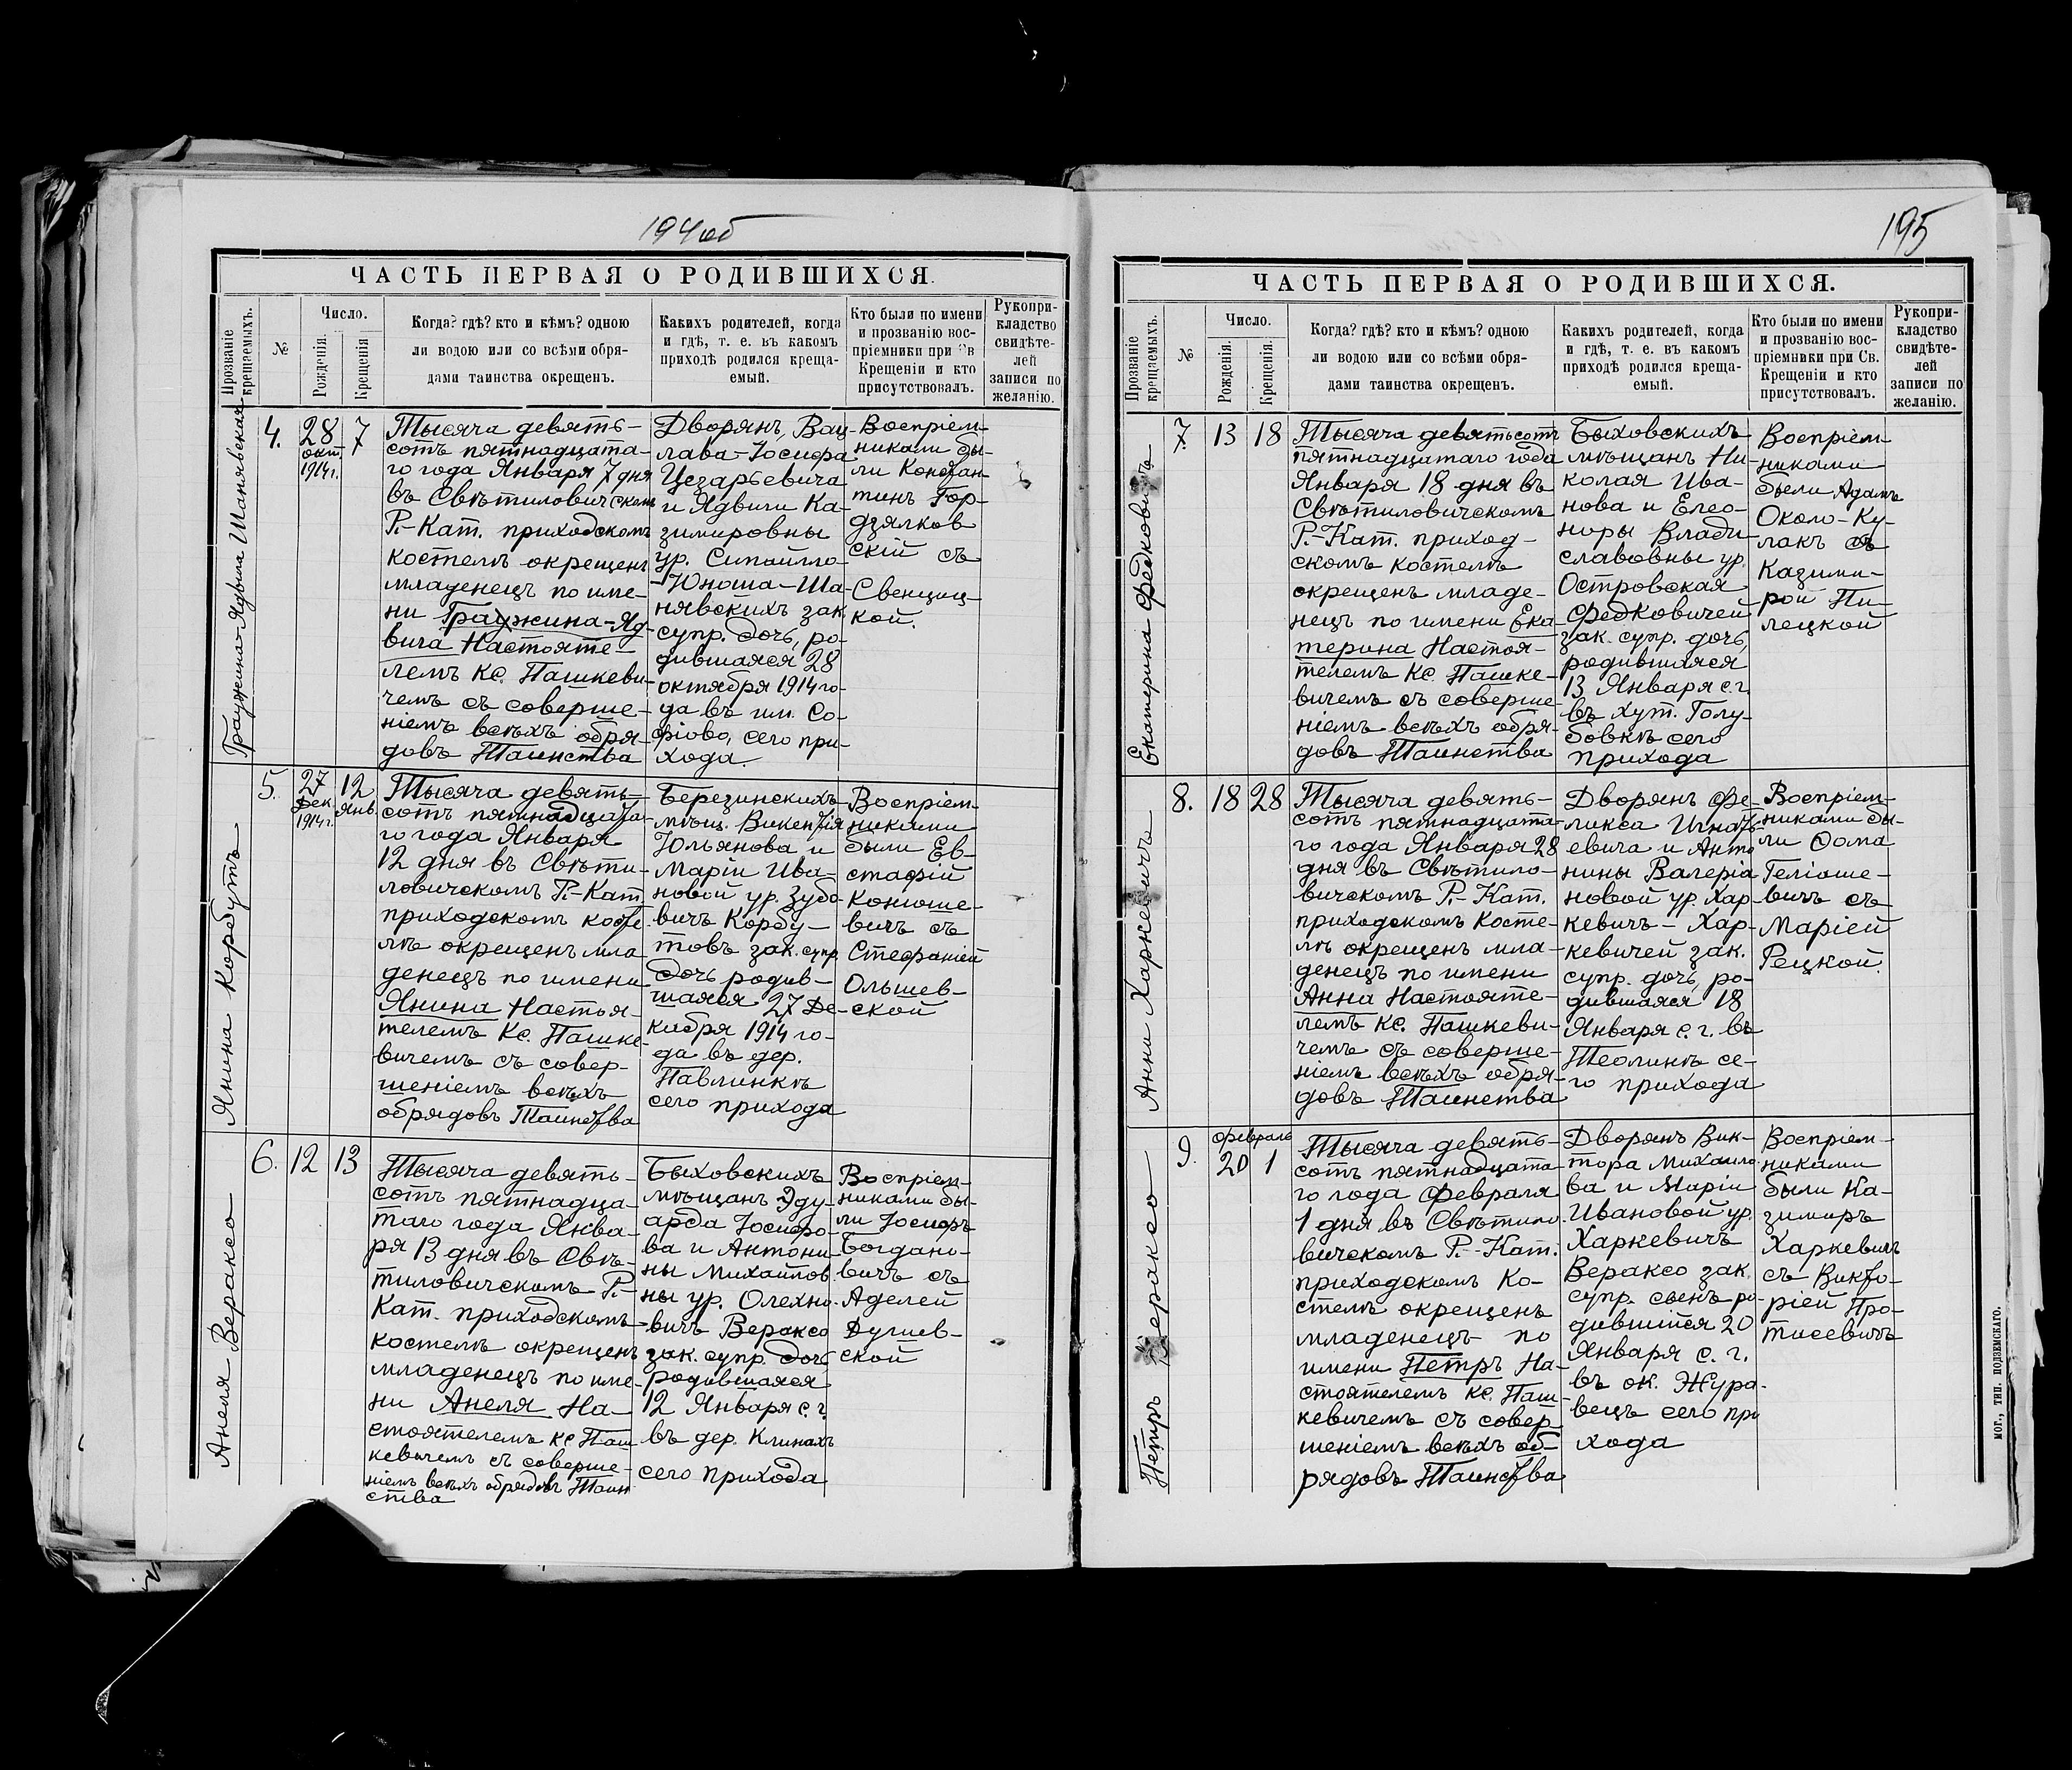 194об
ЧАСТЬ ПЕРВАЯ О РОДИВШИХСЯ.
Прозваніе крещаемыхъ.
№
Число.
Рожденія.
Крещенія
Когда? гдѣ? кто и кѣмъ? одною
ли водою или со всѣми обря-
дами таинства окрещенъ.
Какихъ родителей, когда
и гдѣ, т. е. въ какомъ
приходѣ родился креща-
емый.
Кто были по имени
и прозванію вос-
пріемники при Св
Крещеніи и кто
присутствовалъ.
Рукопри-
кладство
свидѣте-
лей
записи по
желанію.
Гражина-Ядвига Шанявская
4.
28
окт.
1914г.
7
Тысяча девять-
сотъ пятнадцата-
го года Января 7 дня
въ Свѣтиловичскомъ
Р.-Кат. приходскомъ
костелѣ окрещенъ
младенецъ по име-
ни Гражина-Яд-
вига Настояте-
лемъ Кс. Пашкеви-
чемъ съ соверше-
ніемъ всѣхъ обря-
довъ Таинства
Дворянъ, Вац-
лава-Іосифа
Цезарьевича
и Ядвиги Ка-
зимировны
ур. Сипайло
-Юноша-Ша-
нявскихъ зак.
супр. дочь, ро-
дившаяся 28
октября 1914 го-
да въ им. Со-
фіово, сего при-
хода.
Воспріем-
никами бы-
ли Констан-
тинъ Гор-
дзялков
скій съ
Свенциц-
кой.
Янина Корбутъ
5.
27
Дек.
1914г.
12
Янв.
Тысяча девять-
сотъ пятнадцата-
го года Января
12 дня въ Свѣти-
ловичскомъ Р.-Кат.
приходскомъ косте-
лѣ окрещенъ мла
денецъ по имени
Янина Настоя-
телемъ Кс. Пашке-
вичемъ съ совер-
шеніемъ всѣхъ
обрядовъ Таинства
Березинскихъ
мѣщ. Викентія
Юльянова и
Маріи Ива-
новой ур. Зубо
вичъ Корбу-
товъ зак. супр.
дочь родив-
шаяся 27 Де-
кабря 1914 го-
да въ дер.
Павлинкѣ
сего прихода
Воспріем-
никами
были Ев-
стафій
Конюше-
вичъ съ
Стефаніей
Ольшев-
ской
Анеля Вераксо
6.
12
13
Тысяча девять-
сотъ пятнадца-
таго года Янва-
ря 13 дня въ Свѣ-
тиловичскомъ Р.-
Кат. приходскомъ
костелѣ окрещенъ
младенецъ по име-
ни Анеля На-
стоятелемъ Кс Паш
кевичемъ съ соверше-
ніемъ всѣхъ обрядовъ Таин
ства
Быховскихъ
мѣщанъ Эду-
арда Іосифо-
ва и Антони-
ны Михайлов
ны ур. Олехно-
вичъ Вераксо
зак. супр. дочь
родившаяся
12 Января с. г.
въ дер. Клинахъ
сего прихода
Воспріем-
никами бы-
ли Іосифъ
Богдано-
вичъ съ
Аделей
ской
195
ЧАСТЬ ПЕРВАЯ О РОДИВШИХСЯ.
Прозваніе крещаемыхъ.
№
Число.
Рожденія.
Крещенія.
Когда? гдѣ? кто и кѣмъ? одною
ли водою или со всѣми обря-
дами таинства окрещенъ.
Какихъ родителей, когда
и гдѣ, т. е. въ какомъ
приходѣ родился креща-
емый.
Кто были по имени
и прозванію вос-
пріемники при Св.
Крещеніи и кто
присутствовалъ.
Рукопри-
кладство
свидѣте-
лей
записи по
желанію.
Екатерина Федковичъ
7.
13
18
Тысяча девятьсотъ
пятнадцатаго года
Января 18 дня въ
Свѣтиловичскомъ
Р.-Кат. приход-
скомъ костелѣ
окрещенъ младе-
нецъ по имени Ека
терина Настоя-
телемъ Кс. Пашке-
вичемъ съ соверше-
ніемъ всѣхъ обря-
довъ Таинства
Быховскихъ
мѣщанъ Ни-
колая Ива-
нова и Елео-
норы Влади
славовны ур.
Островская
Федковичей
зак. супр. дочь,
родившаяся
13 Января с. г.
въ хут. Голу-
бовкѣ сего
прихода
Воспріем-
никами
были Адамъ
Около-Ку-
лакъ съ
Казими-
рой Пи-
лецкой
Анна Харкевичъ
8.
18
28
Тысяча девять-
сотъ пятнадцата-
го года Января 28
дня въ Свѣтило-
вичскомъ Р.-Кат.
приходскомъ Косте-
лѣ окрещенъ мла-
денецъ по имени
Анна Настояте-
лемъ Кс. Пашкеви-
чемъ съ соверше-
ніемъ всѣхъ обря-
довъ Таинства
Дворянъ Фе-
ликса Игнать
евича и Анто
нины Валеріа
новой ур. Хар
кевичъ-Хар-
кевичей зак.
супр. дочь, ро-
дившаяся 18
Января с. г. въ
Теолинѣ се-
го прихода
Воспріем-
никами бы-
ли Фома
Геліоше-
вичъ съ
Маріей
Рецкой.
Петръ Вераксо
9.
Февраль
20
1
Тысяча девять-
сотъ пятнадцата
го года Февраля
1 дня въ Свѣтило-
вичскомъ Р.-Кат.
приходскомъ Ко-
стелѣ окрещенъ
младенецъ по
имени Петръ На-
стоятелемъ Кс. Паш-
кевичемъ съ совер-
шеніемъ всѣхъ об-
рядовъ Таинства
Дворянъ Вик-
тора Михайло-
ва и Маріи
Ивановой ур.
Харкевичъ
Вераксо зак.
супр. сынъ ро-
дившійся 20
Января с. г.
въ ок. Жура-
вецъ сего при
хода
Воспріем-
никами
были Ка-
зимиръ
Харкевичъ
съ Викто-
ріей Про-
тасевичъ
МОГ., ТИП. ПОДЗЕМСКАГО.